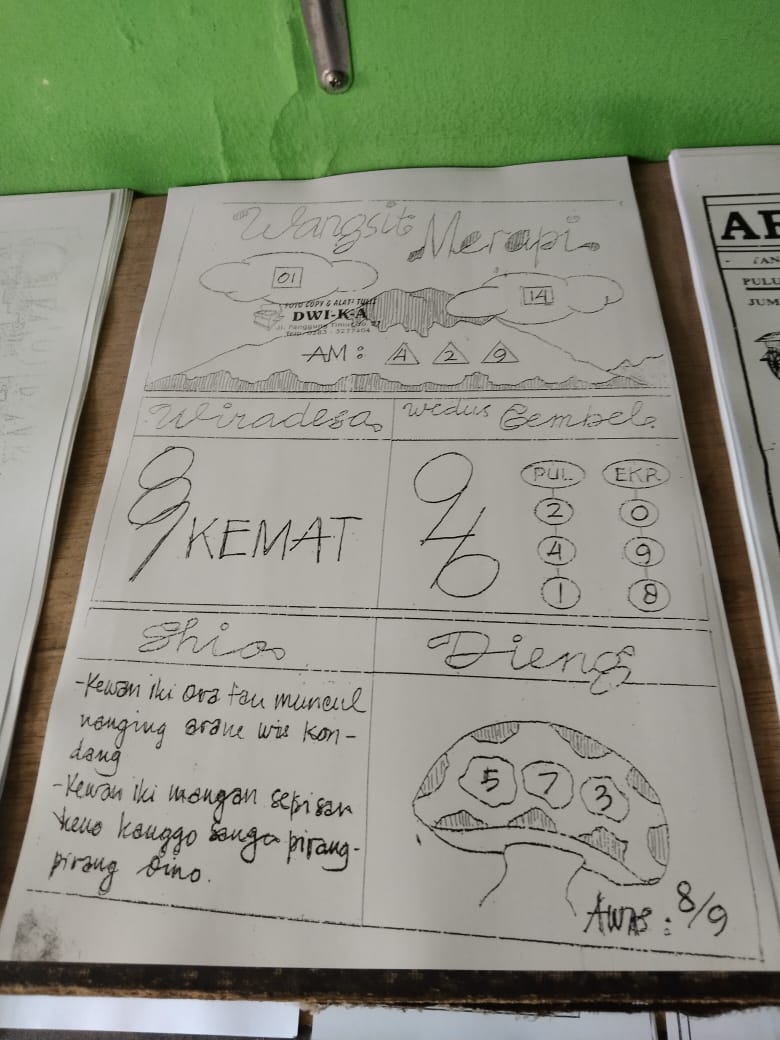 Wangsit Merapi
01
14
FOTO COPY & ALAT² TULIS
DWI-K-A
Jl. Panggung Timur
AM : 4 2 9
Wiradesa
Wedus Gembel
KEMAT
PUL EKR
2 0
4 9
1 8
Shio
Dieng
-Kewan iki ora tau muncul
nanging arane wis kon-
dang
-Kewan iki mangan sepisan
keno kanggo sanga pirang-
pirang dino.
5 7 3
AWAS : 8/9
AR
PULU
JUM